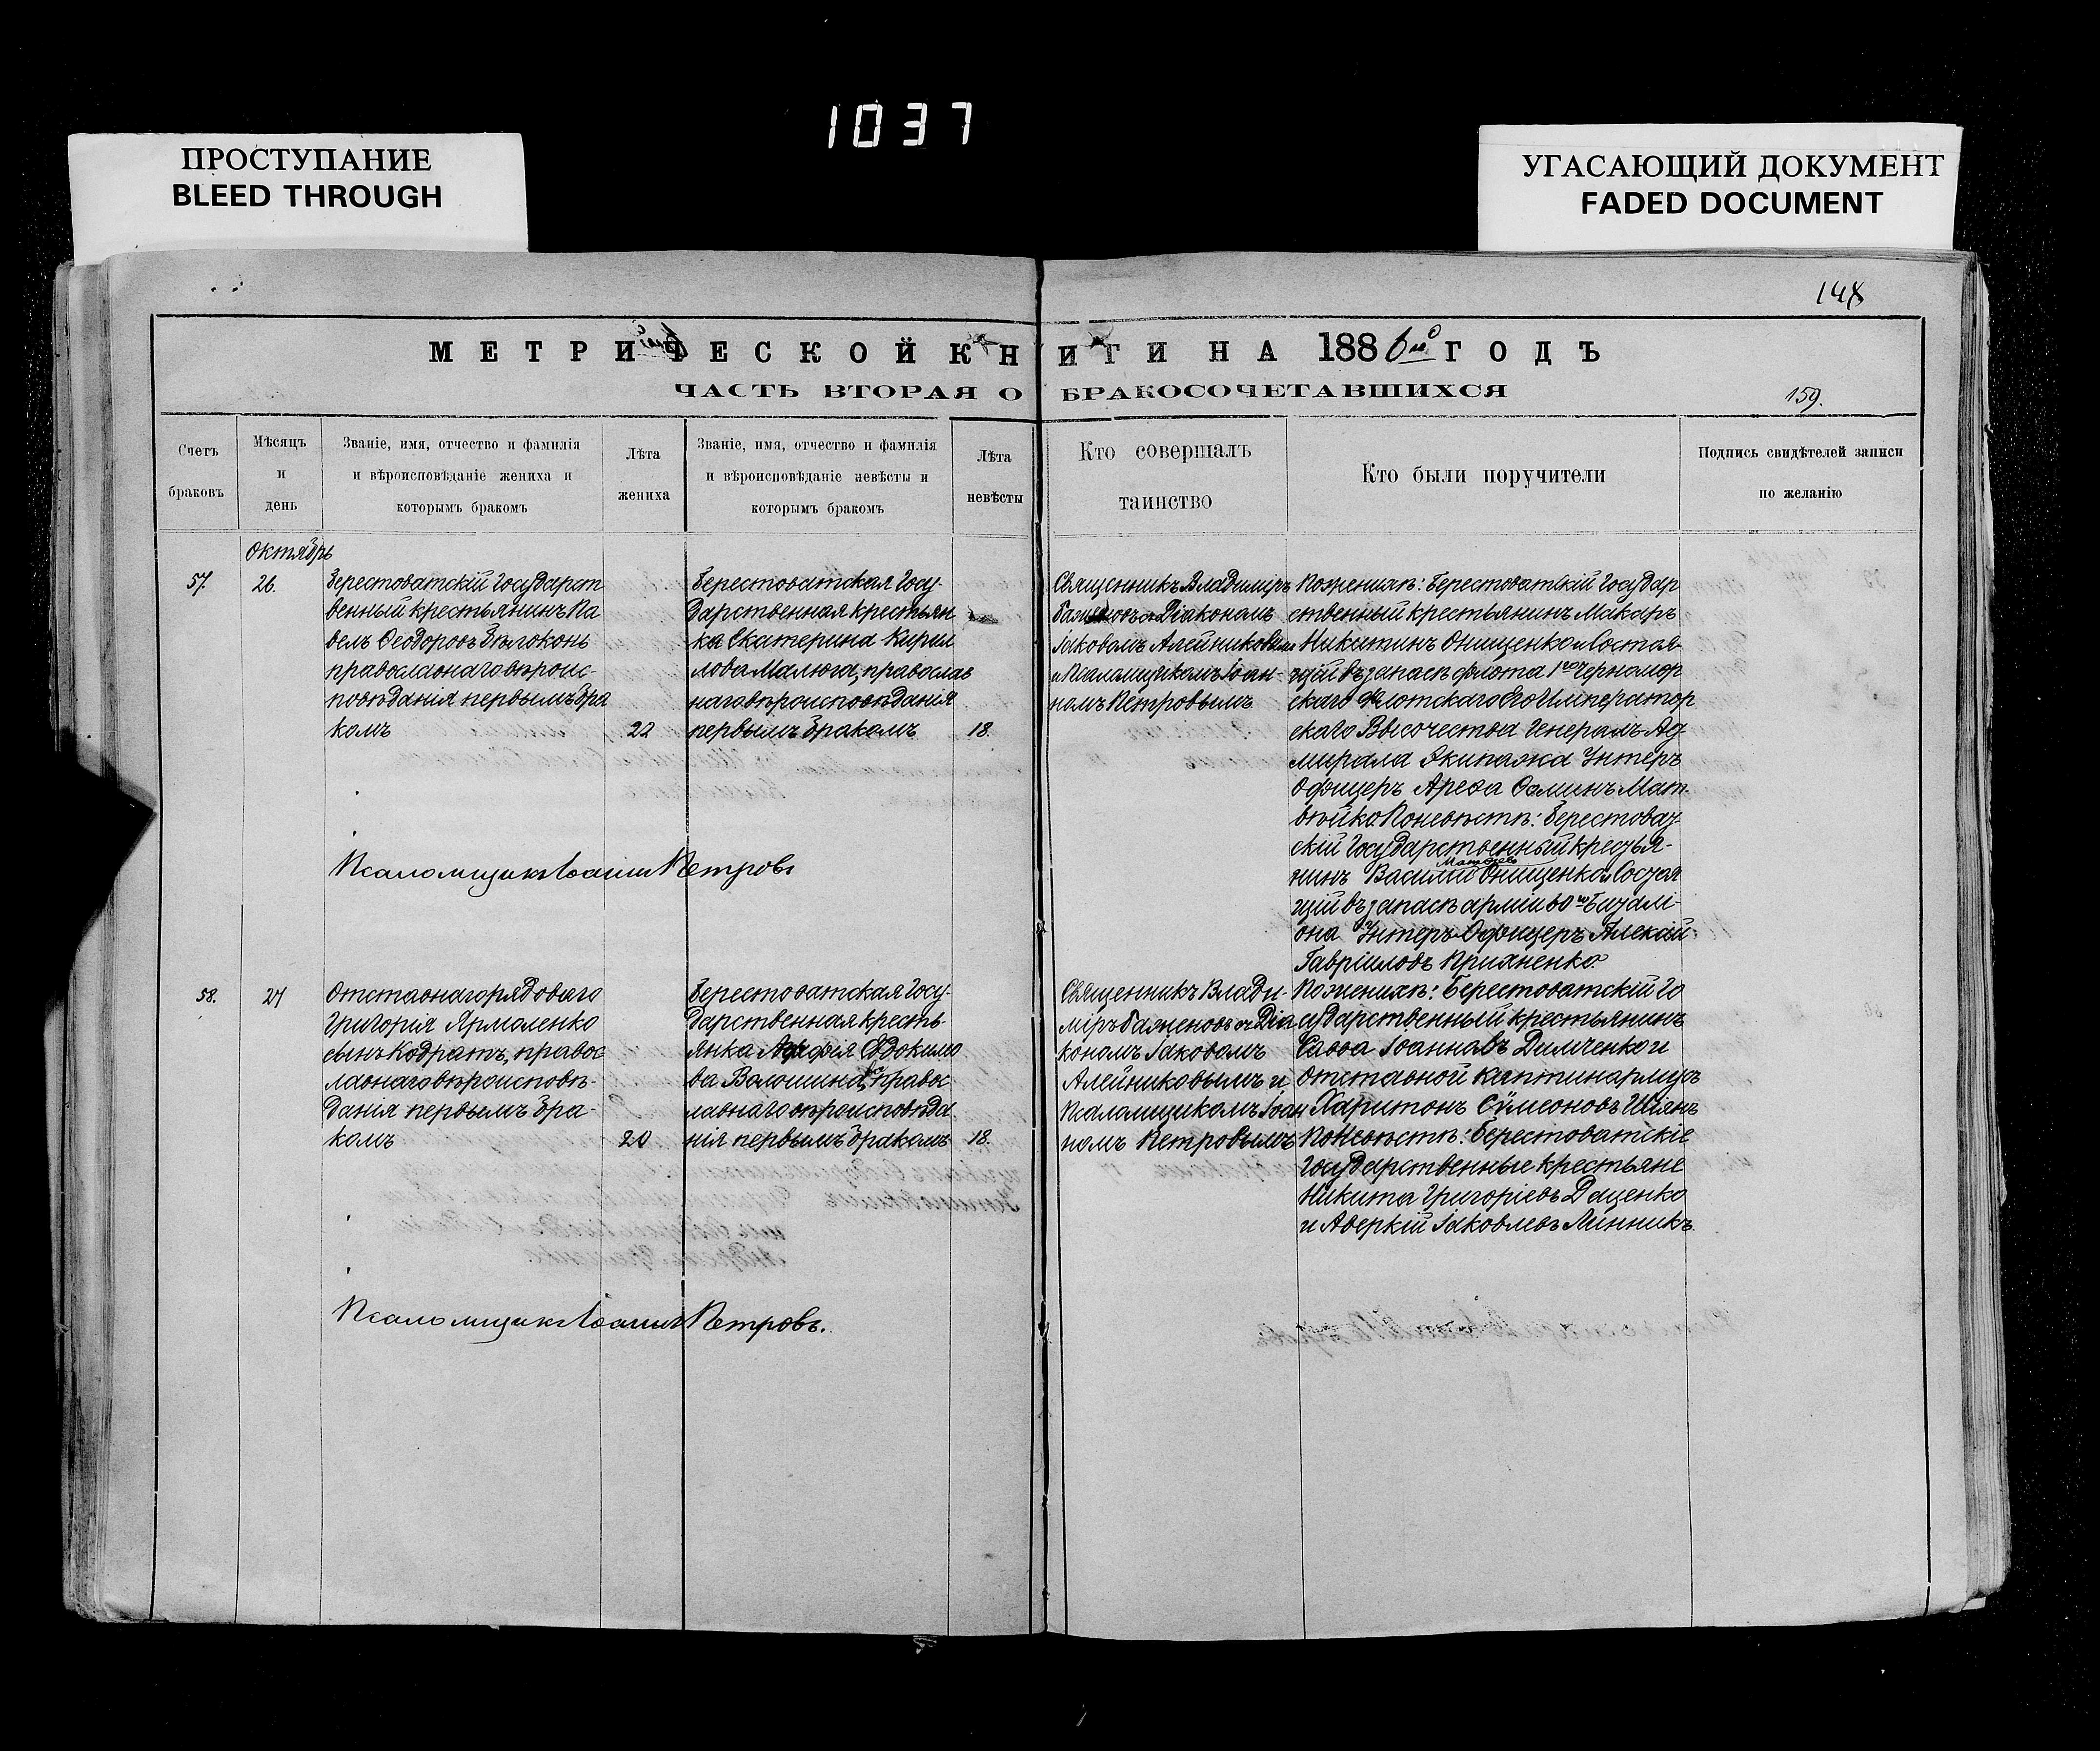 1037
ПРОСТУПАНИЕ
BLEED THROUGH
УГАСАЮЩИЙ ДОКУМЕНТ
FADED DOCUMENT
148
МЕТРИЧЕСКОЙ КНИГИ НА 1886й ГОДЪ
ЧАСТЬ ВТОРАЯ О БРАКОСОЧЕТАВШИХСЯ
159.
Счетъ
браковъ
Мѣсяцъ
и
день
Званіе, имя, отчество и фамилія
и вѣроисповѣданіе жениха и
которымъ бракомъ
Лѣта
жениха
Званіе, имя, отчество и фамилія
и вѣроисповѣданіе невѣсты и
которымъ бракомъ
Лѣта
невѣсты
Кто совершалъ
таинство
Кто были поручители
Подпись свидѣтелей записи
по желанію
Октябрь
57.
26.
Берестоватскій Государст
венный крестьянинъ Па
велъ Ѳеодоровъ Бѣлоконь
православнаго вѣроис-
повѣданія первымъ бра
комъ
22
Берестоватская Госу-
дарственная крестьян
ка Екатерина Кирил
лова Малюга, православ
наго вѣроисповѣданія
первымъ бракомъ
18.
Священникъ Владиміръ
Баженовъ съ Діакономъ
Іаковомъ Алейниковымъ
и Псаломщикомъ Іоан-
номъ Петровымъ
По женихѣ: Берестоватскій Государ
ственный крестьянинъ Макаръ
Никитинъ Онищенко и Состоя-
щій въ запасѣ флота 1го Черномор
скаго Флотскаго Его Император
скаго Высочества Генералъ Ад-
мирала Экипажа Унтеръ
Офицеръ Ареѳа Ѳоминъ Мат-
вѣйко По невѣстѣ: Берестоват-
скій Государственный крестья-
Матѳеевъ
нинъ Василій Онищенко и Состоя
щій въ запасѣ арміи 60го Баталі-
она Унтеръ-Офицеръ Алексій
Гавріиловъ Прихненко.
Псаломщикъ Іоаннъ Петровъ
58.
27
Отставнаго рядоваго
Григорія Ярмоленко
сынъ Кодратъ, правос
лавнаго вѣроисповѣ-
данія первымъ бра-
комъ
20
Берестоватская Госу-
дарственная кресть-
янка Агафія Евдокимо
ва Волошина, правос
лавнаго вѣроисповѣда
нія первымъ бракомъ
18.
Священникъ Влади-
міръ Баженовъ съ Діа
кономъ Іаковомъ
Алейниковымъ и
Псаломщикомъ Іоан
номъ Петровымъ
По женихѣ: Берестоватскій Го
сударственный крестьянинъ
Савва Іоанновъ Димченко и
отставной каптинармусъ
Харитонъ Сѵмеоновъ Шіянъ
По невѣстѣ: Берестоватскіе
Государственные крестьяне
Никита Григоріевъ Даценко
и Аверкій Іаковлевъ Линникъ.
Псаломщикъ Іоаннъ Петровъ.